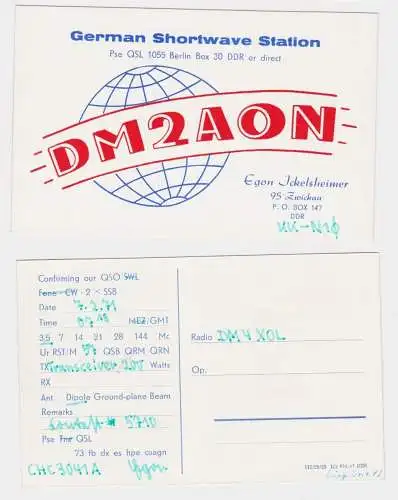 German Shortwave Station
Pse QSL 1055 Berlin Box 30 DDR or direct
DM2AON
Egon Ickelsheimer
95 Zwickau
P. O. BOX 147
DDR
KK-N10
Confirming our QSO SWL
Fone CW - 2 × SSB
Date 7.2.71
Time MEZ/GMT
3,5 7 14 21 28 144 Mc
Ur RST/M 59 QSB QRM QRN
TX Transceiver 200 Watts
RX
Ant Dipole Ground-plane Beam
Remarks
5710
Pse Tnx QSL
73 fb dx es hpe cuagn
CHC3041A Egon
Radio DM4XOL
Op.